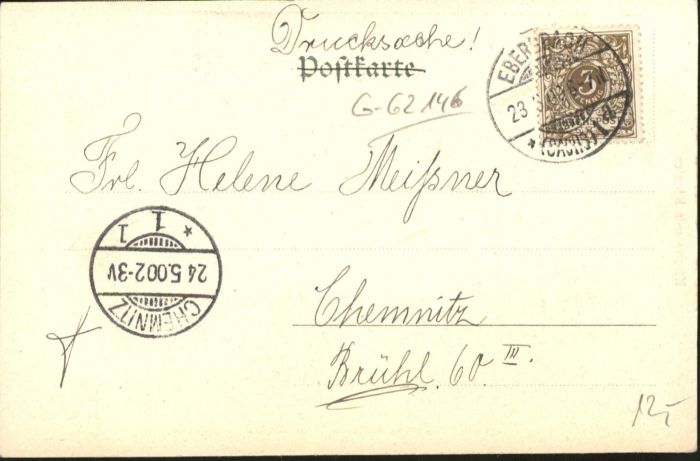 Drucksache!
Postkarte
G-62146
EBERSBACH
23
(SACHS)
3
Frl. Helene Meißner
1
1
24.5.00 2-3V
CHEMNITZ
Chemnitz
Brühl. 60 III.
12,-